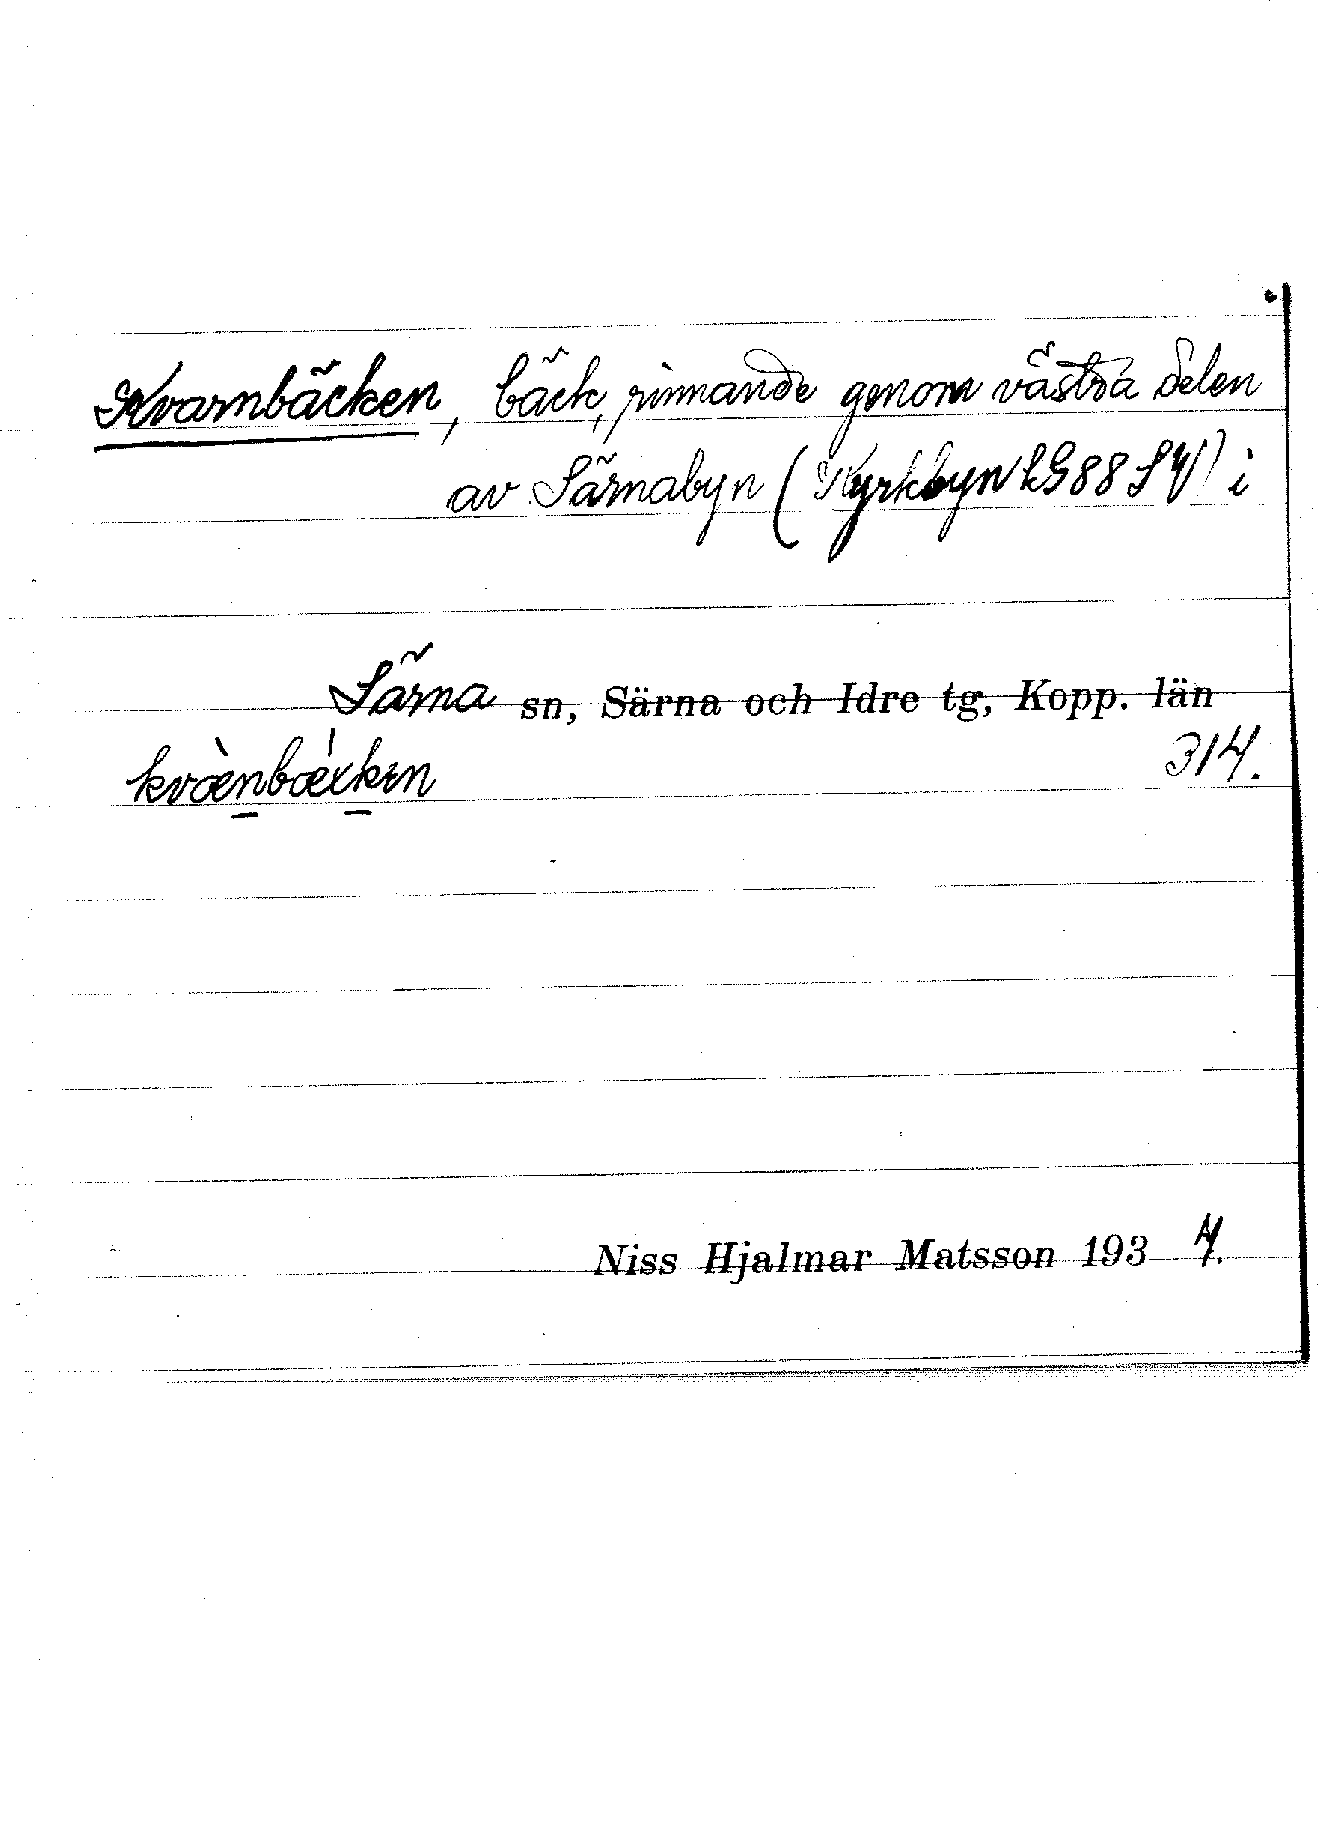 Kvarnbäcken, bäck, rinnande genom västra delen
av Särnabyn (Kyrkbyn LG88 SV) i
Särna sn, Särna och Idre tg, Kopp. län
314.
Niss Hjalmar Matsson 1934.